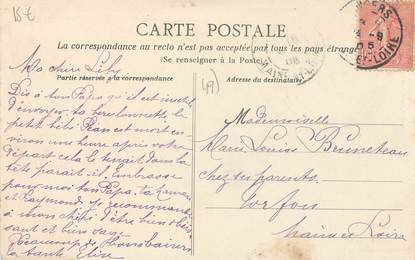 15 €
CARTE POSTALE
La correspondance au recto n'est pas acceptée par tous les pays étrangers
(Se renseigner à la Poste)
Partie réservée à la correspondance
Adresse du destinataire
49
ANGERS
ET-LOIRE
MAINE-ET-LOIRE
Ma chère Lily
Dis à ton Papa qu'il est inutile
d'envoyer ta bercelonnette, le
petit bébé est mort en-
viron une heure après votre
départ cela le tenait dans la
tête paraît-il. Embrasse
pour moi ton Papa, ta Maman
et Raymond. Je recommande
à mon d'être bien obéis-
sant et bien sage.
Beaucoup de bons baisers
ta tante Elise
Mademoiselle
Marie Louise Bruneteau
chez ses parents
Torfou
Maine et Loire